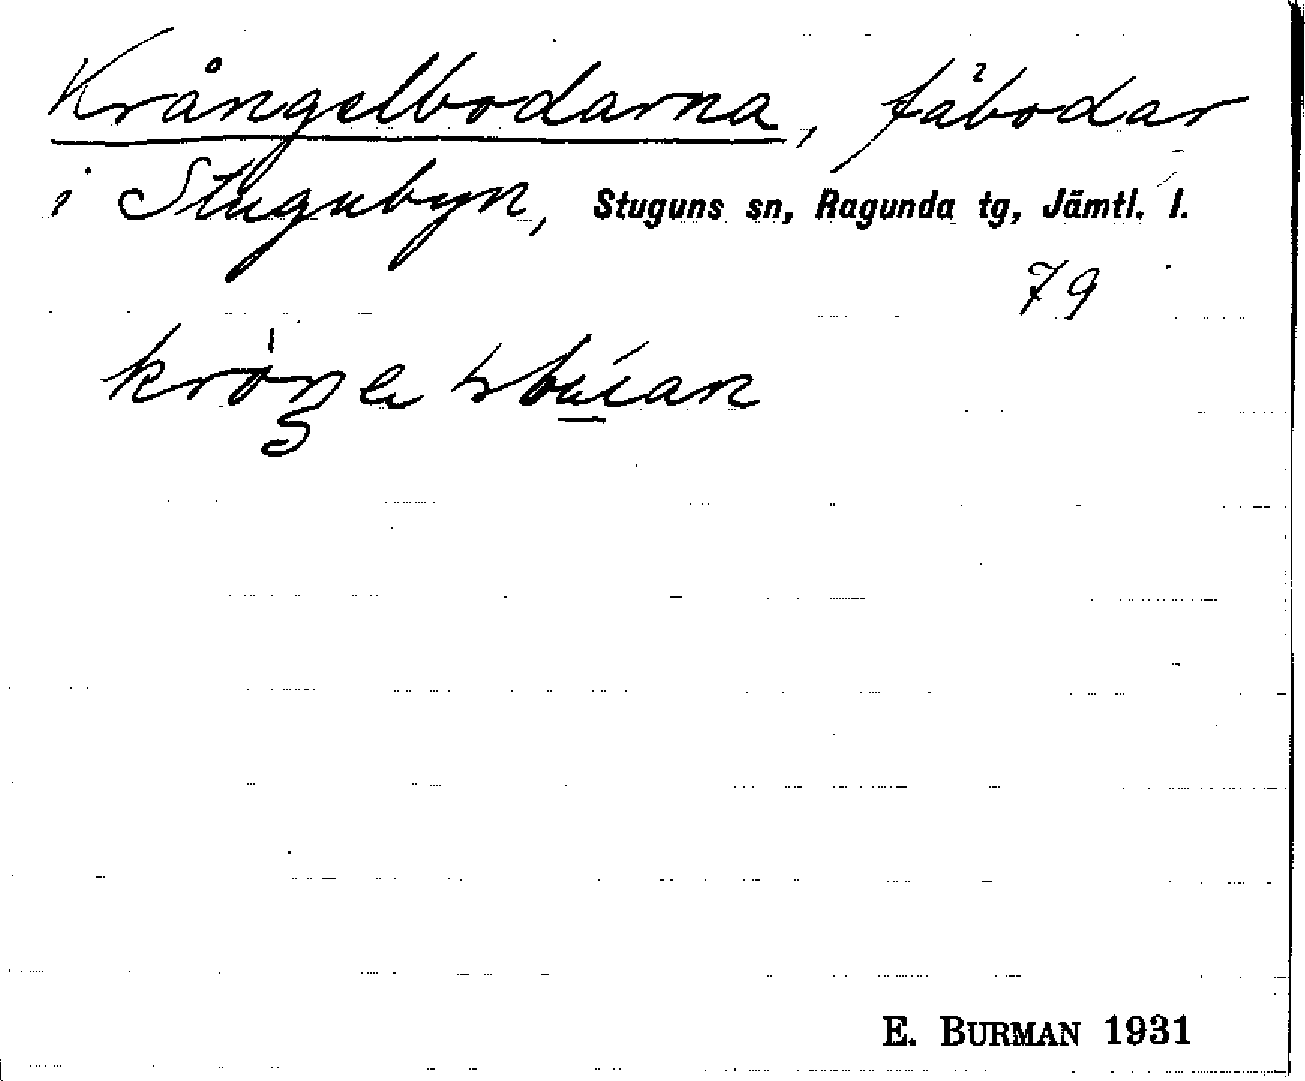 Krångelbodarna, fäbodar
i Stugubyn, Stuguns sn, Ragunda tg, Jämtl. l.
79
E. BURMAN 1931